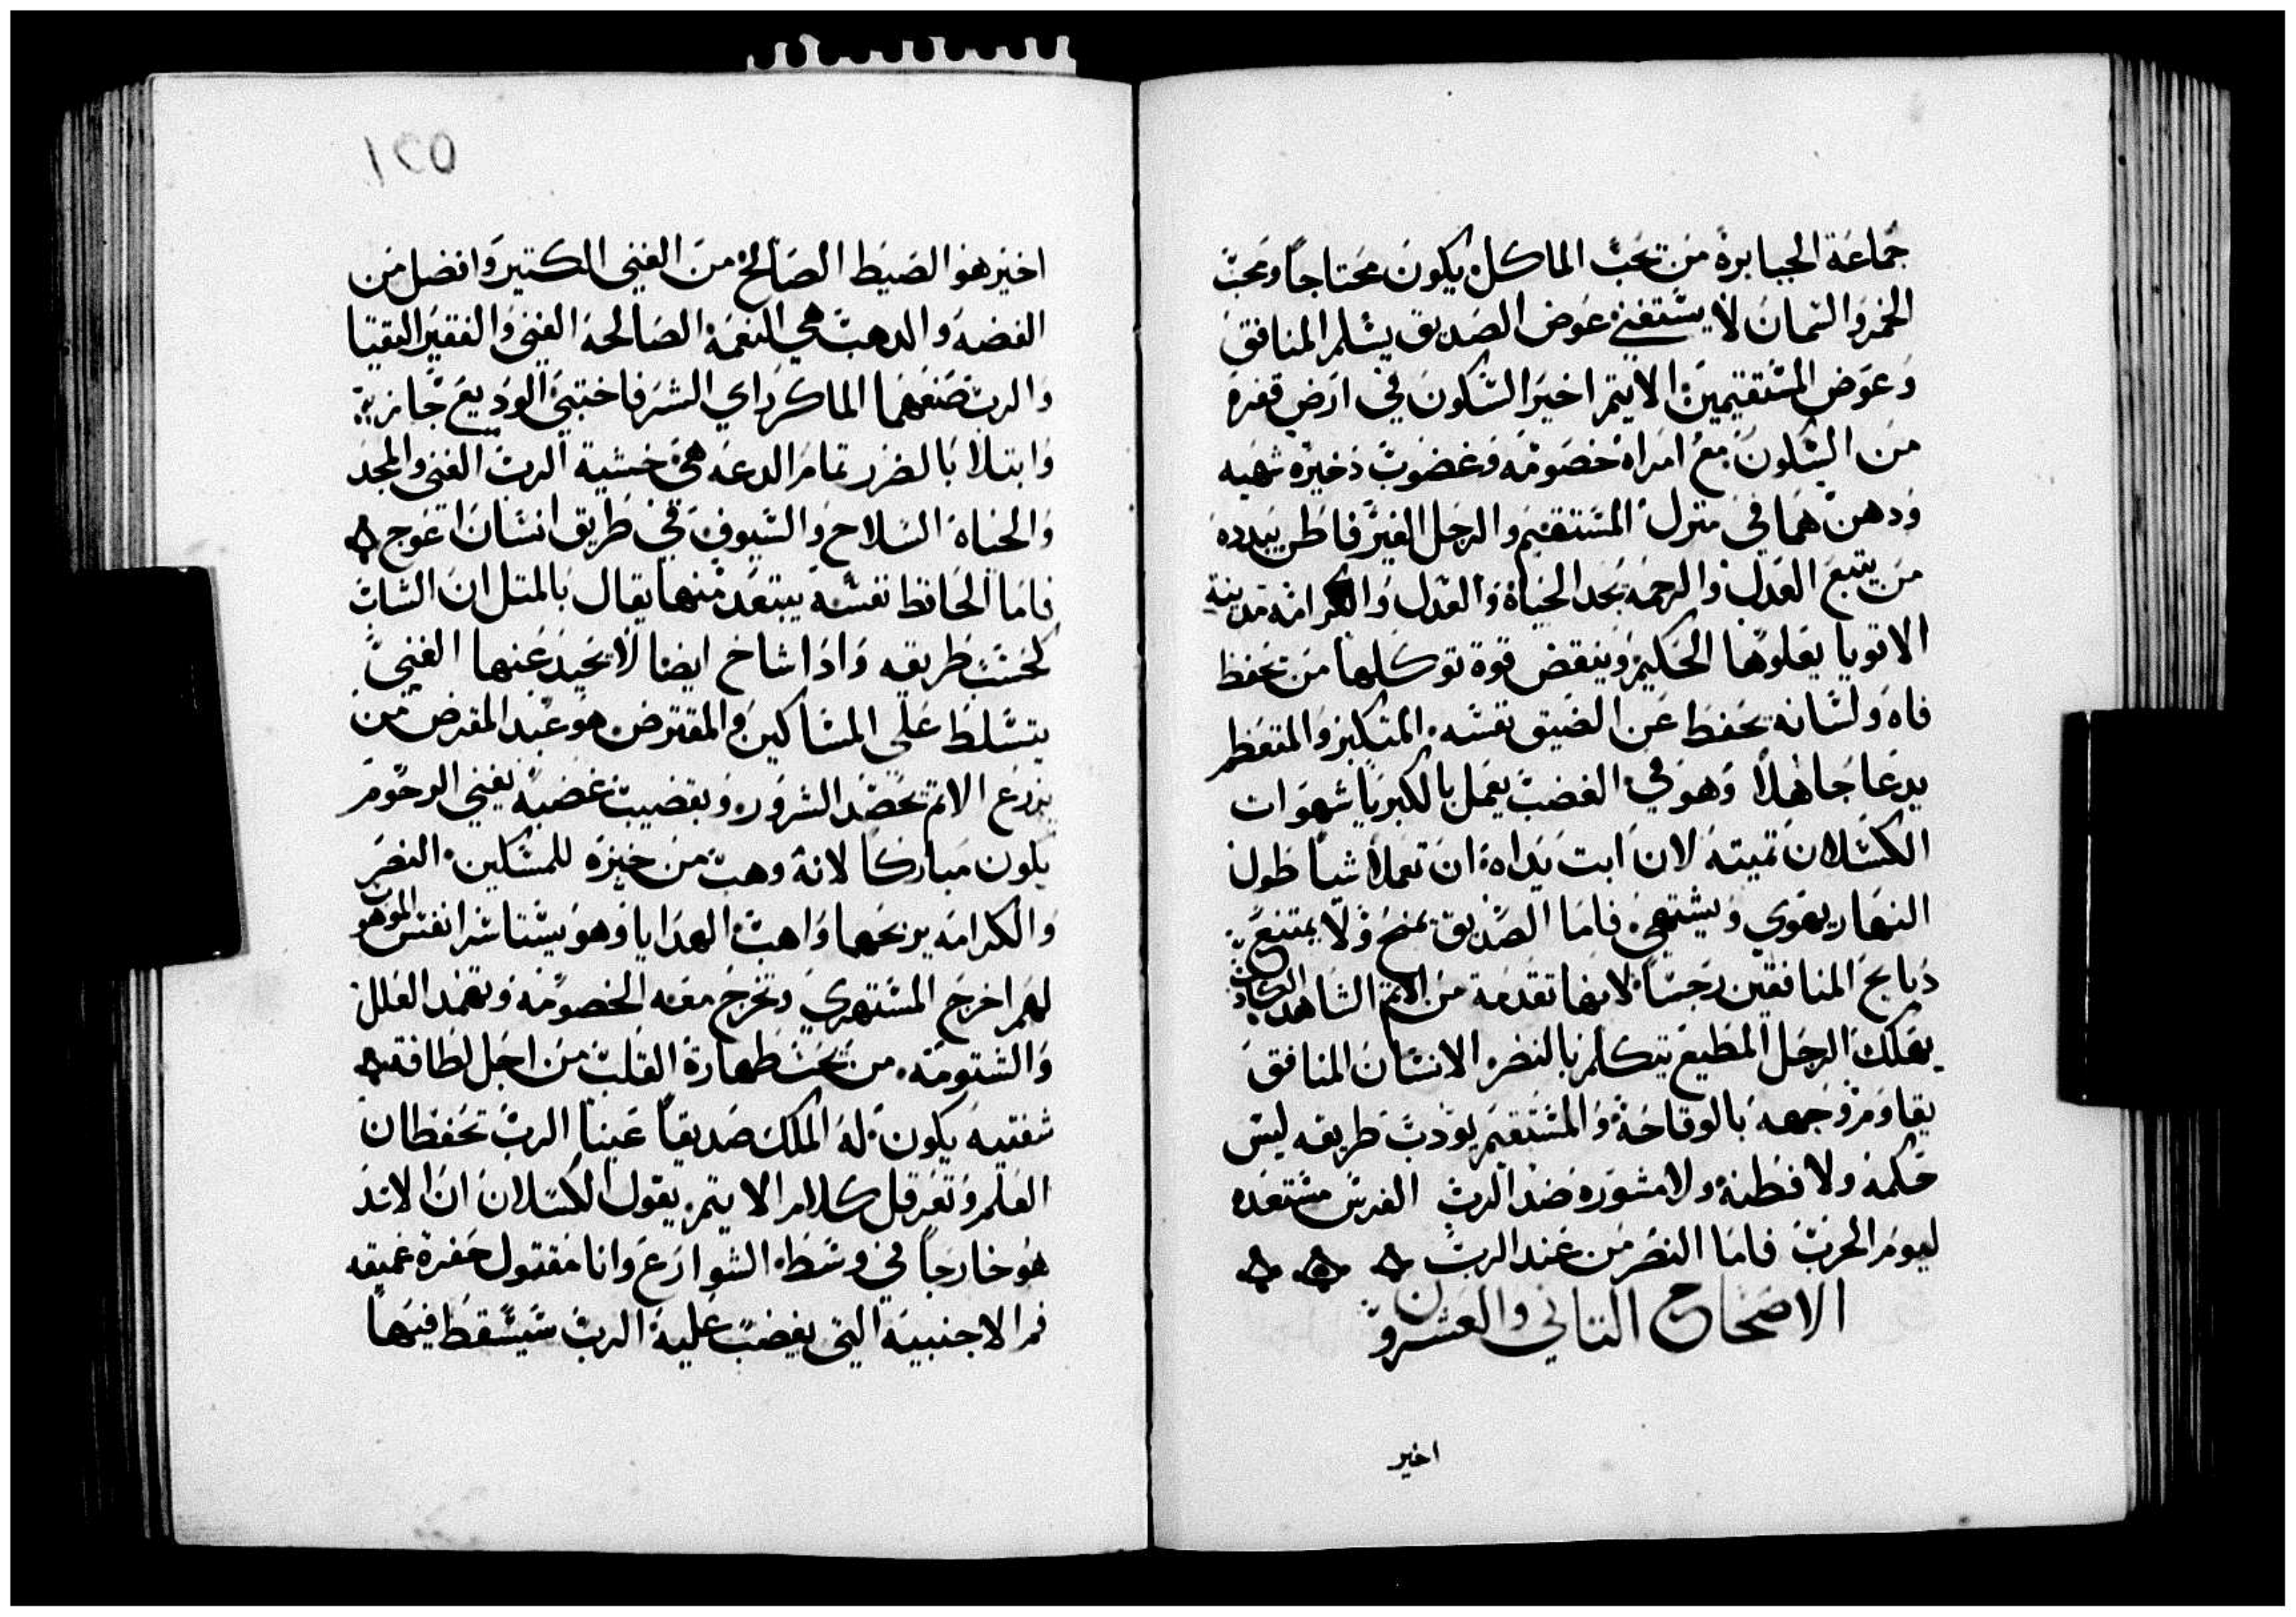 جماعة الجبابرة من يحب الماكل يكون محتاجا ومحب
الخمر والسمان لا يستغني عوض الصديق يسلم المنافق
وعوض المستقيمين الاثيم اخير السكون في ارض قفرة
من السكون مع امراه خصومه وغضوب دخيره شهيه
ودهن هما في منزل المستقيم والرجل الغير فاطن يبدده
من يتبع العدل والرحمه يجد الحياة والعدل والكرامه مدينة
الاقويا يعلوها الحكيم وينقض قوة توكلها من يحفظ
فاه ولسانه يحفظ عن الضيق نفسه المتكبر والمتعظم
يدعا جاهلا وهو في الغضب يعمل بالكبريا شهوات
الكسلان تميته لان ابت يداه ان تعملا شيا طول
النهار يهوي ويشتهي فاما الصديق يمنح ولا يمتنع
دبايح المنافقين رجسا لانها تقدمة من الاتم الشاهد الكادب
يهلك الرجل المطيع يتكلم بالنصر الانسان المنافق
يقاوم وجهه بالوقاحة والمستقيم يودب طريقه ليس
حكمة ولا فطنة ولا مشوره ضد الرب الفرس مستعده
ليوم الحرب فاما النصر من عند الرب
الاصحاح التاني والعشرون
اخير
١٢٥
اخير هو الصيط الصالح من الغني الكتير وافضل من
الفضه والدهب هي النعمة الصالحة الغني والفقير التقيا
والرب صنعهما الماكر راي الشر فاختبي الوديع جاز
وابتلا بالضرر تمام الدعه هي خشية الرب الغني والمجد
والحياة السلاح والسيوف في طريق انسان اعوج
فاما الحافظ نفسه يبتعد منها يقال بالمتل ان الشاب
كحسب طريقه وادا شاخ ايضا لا يحيد عنها الغني
يتسلط على المساكين والمقترض هو عبد المقرض من
يزرع الاتم يحصد الشرور وبقضيب غضبه يفني الرحوم
يكون مباركا لانه وهب من خبزه للمسكين النصر
والكرامه يربحهما واهب الهدايا وهو يستاسر انفس الموهو
لهم اخرج المستهزي وتخرج معه الخصومه وتهمد العلل
والشتومه من يحب طهارة القلب من اجل لطافة
شفتيه يكون له الملك صديقا عينا الرب تحفظان
العلم وتعرقل كلام الاثيم يقول الكسلان ان الاسد
هو خارجا في وسط الشوارع وانا مقتول حفرة عميقه
فم الاجنبيه التي يغضب عليه الرب سيسقط فيها